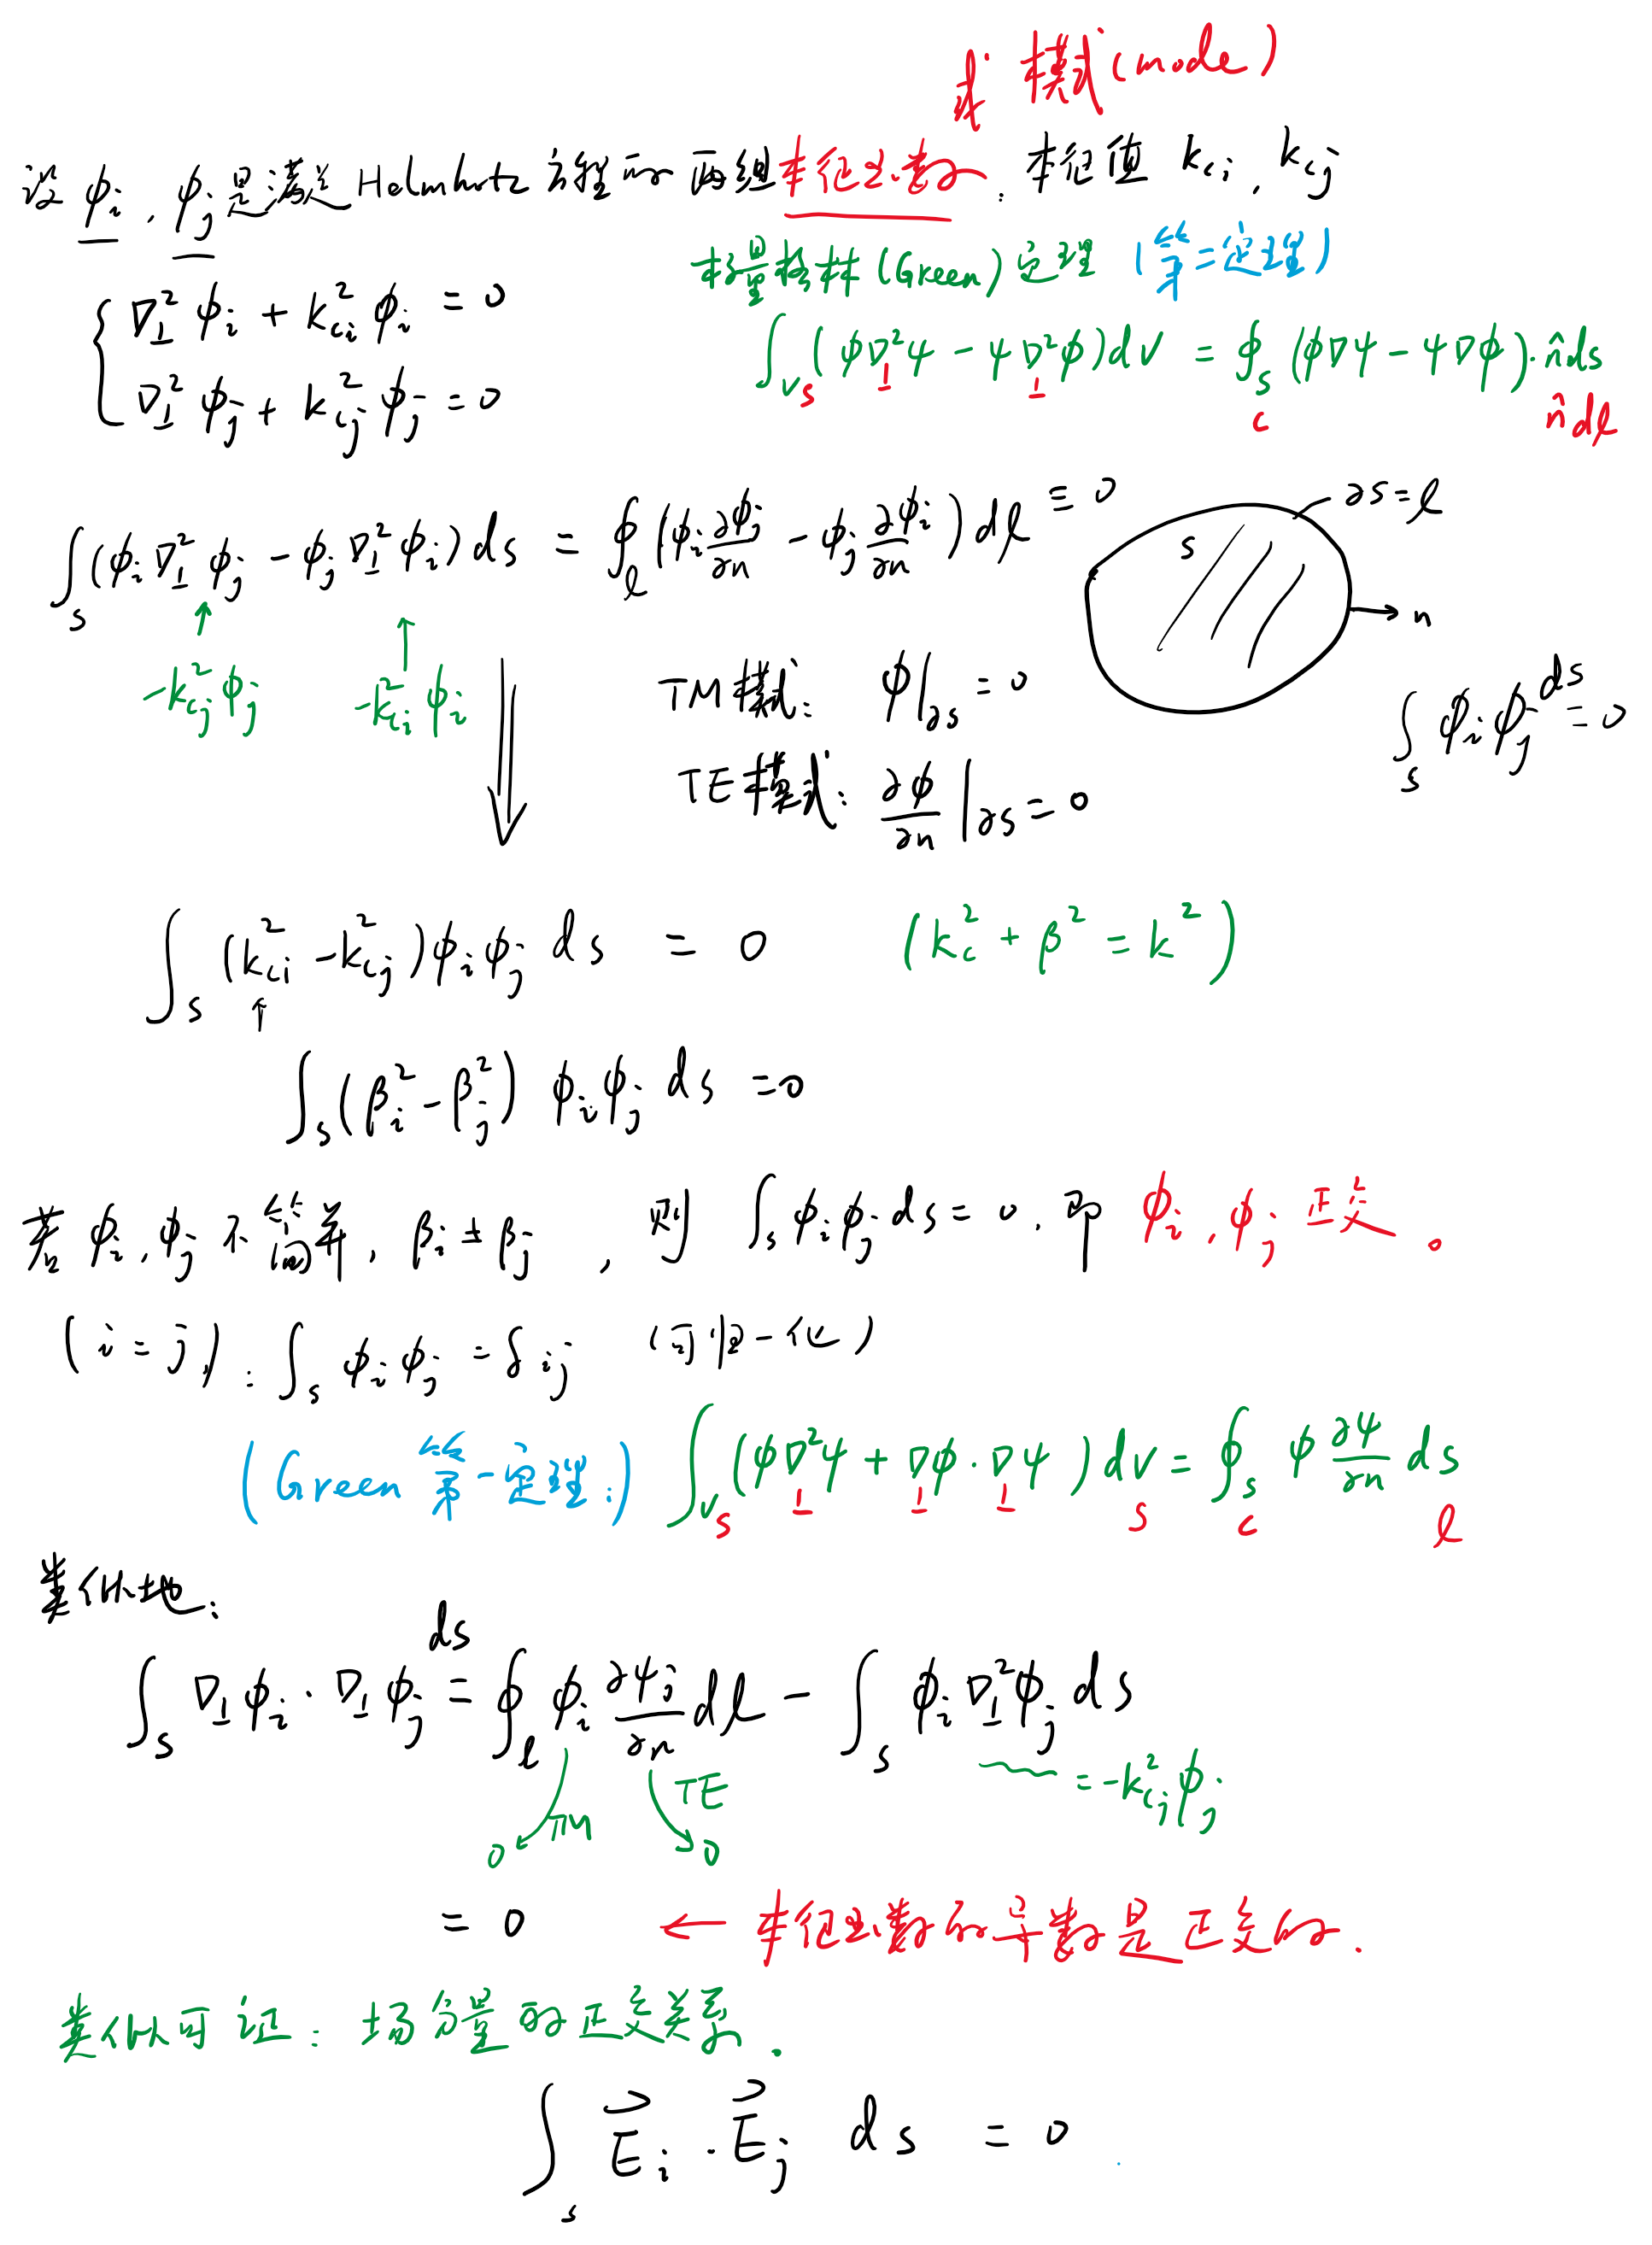 或 模式(mode)
设 φi, φj 是满足 Helmhotz 方程的两组本征函数, 本征值 kci, kcj
标量格林(Green)定理 (第二定理)
∇⊥²φi + kci²φi = 0
∇⊥²φj + kcj²φj = 0
∫V S (φ∇⊥²ψ − ψ∇⊥²φ)dV = ∮S C (φ∇ψ − ψ∇φ)·n̂ds n̂dℓ
∫S (φi∇⊥²φj − φj∇⊥²φi)ds = ∮ℓ (φi ∂φj/∂n − φj ∂φi/∂n)dℓ ≡ 0
∂S=ℓ
S
n
−kcj²φj −kci²φi
TM模式: φ|∂S = 0
∫S φiφj ds = 0
TE模式: ∂φ/∂n |∂S = 0
∫S (kci² − kcj²)φiφj ds = 0 (kc² + β² = k²)
∫S (βi² − βj²) φiφj ds = 0
若 φi, φj 不简并, βi ≠ βj, 则 ∫S φiφj ds = 0, 即 φi, φj 正交。
(i = j): ∫S φiφj = δij (可归一化)
(Green 第一定理:) ∫V S (φ∇⊥²ψ + ∇⊥φ·∇⊥ψ)dV S = ∮S C φ ∂ψ/∂n ds ℓ
类似地:
∫S ∇⊥φi·∇⊥φj ds = ∮ℓ φi ∂ψj/∂n dℓ − ∫S φi∇⊥²φj ds
TM 0 TE 0 = −kcj²φj
= 0 ← 本征函数的导数是正交的.
类似可证: 场分量的正交关系.
∫S E⃗i · E⃗j ds = 0